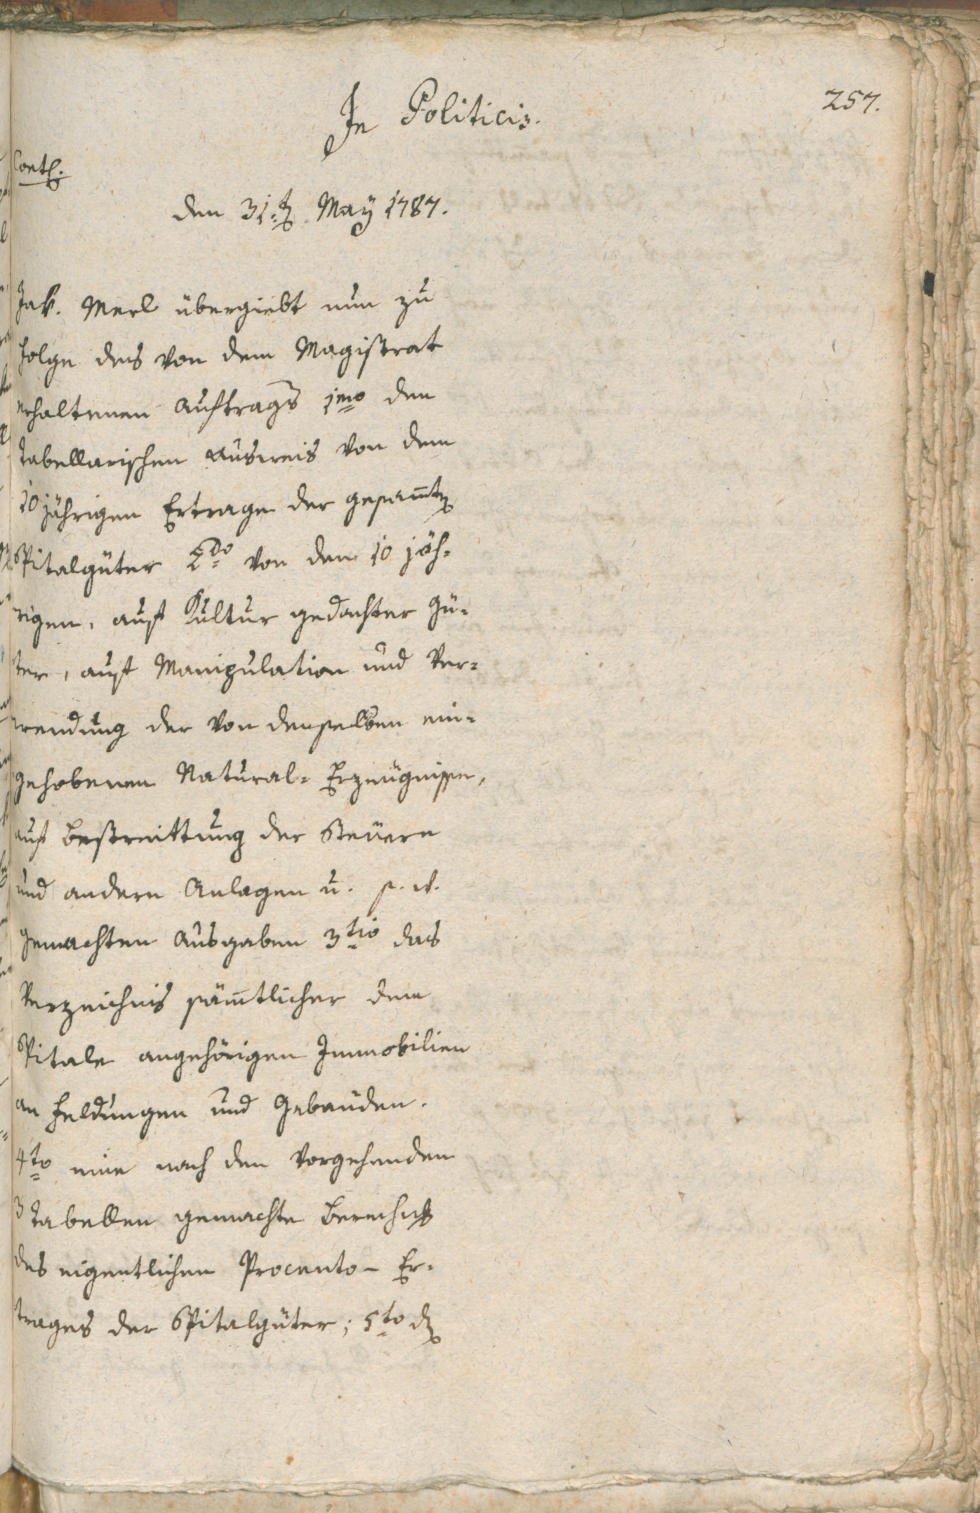 In Politicis.
257.
Cont.
den 31.t May 1787.
Jak. Merl übergiebt nun zu
folge des von dem Magistrat
erhaltenen Auftrags 1mo den
tabellarischen Ausweis von dem
10 jährigen Ertrage der gesammten
Spitalgüter 2do von den 10 jäh-
rigen, auf Kultur gedachter Gü-
ter, auf Manipulation und Ver-
wendung der von denselben ein-
gehobenen Natural-Erzeugnisse,
auf Bestreittung der Steüern
und andern Anlagen u. s. w.
gemachten Ausgaben 3tio das
Verzeichnis sämtlicher dem
Spitale angehörigen Immobilien
an Feldungen und Gebäuden.
4to eine nach den vorgehenden
3 Tabellen gemachte Berechng
des eigentlichen Procento- Er-
trages der Spitalgüter; 5to